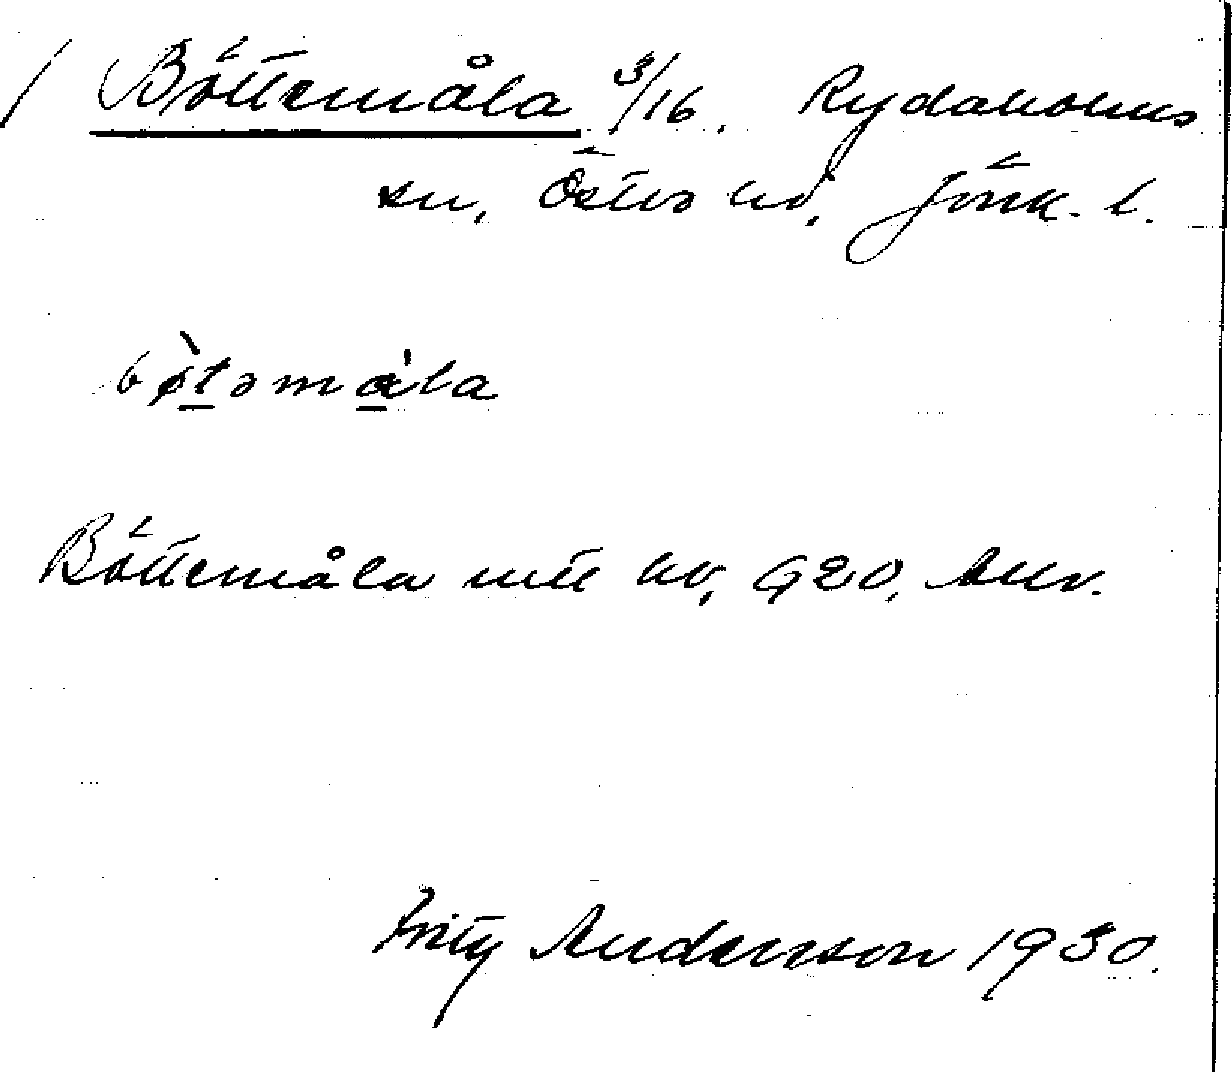 / Böttemåla 3/16. Rydaholms
sn, Östbo hd, Jönk. l.
bø̀təmåla
Böttemåla mtl nr, G20,
Fritz Anderson 1930.